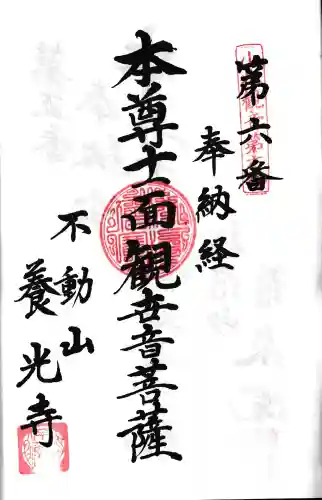 第六番
奉納経
本尊十一面観世音菩薩
不動山
養光寺